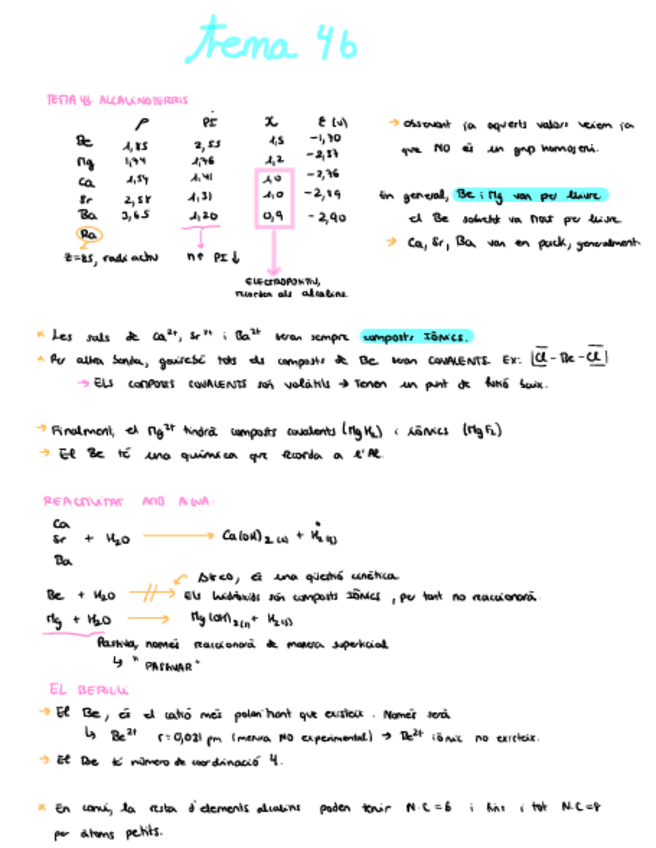 tema 4b
TEMA 4b. ALCALINOTERRIS
ρ PI χ ε (v)
Be 1,85 2,53 1,5 -1,70
Mg 1,74 1,76 1,2 -2,37
Ca 1,54 1,41 1,0 -2,76
Sr 2,58 1,31 1,0 -2,89
Ba 3,65 1,20 0,9 -2,90
Ra
radi activ nº PI ↓
ELECTROPOSITIU,
recorden als alcalins.
→ observant ja aquests valors veiem ja
que NO és un grup homogeni.
En general, Be i Mg van per lliure
el Be sobretot va molt per lliure
→ Ca, Sr, Ba van en pack, generalment
Les sals de Ca²⁺, Sr²⁺ i Ba²⁺ seran sempre composts IÒNICS.
Per altra banda, gairebé tots els composts de Be seran COVALENTS. EX: |Cl - Be - Cl|
→ ELS COMPOSTS COVALENTS són volàtils → Tenen un punt de fusió baix.
→ Finalment, el Mg²⁺ tindrà composts covalents (MgH₂) i iònics (MgF₂)
→ El Be té una química que recorda a l'Al.
REACTIVITAT AMB AIGUA:
Ca
Sr + H₂O → Ca(OH)₂ + H₂(g)
Ba
Δε<0, és una qüestió cinètica
Be + H₂O → Els hidròxids són composts IÒNICS, per tant no reaccionarà.
Mg + H₂O → Mg(OH)₂ + H₂(g)
només reaccionarà de manera superficial
↳ "PASSIVAR"
EL BERIL·LI
→ El Be, és el catió més polaritzant que existeix. Només serà
↳ Be²⁺ r=0,031 pm (mesura NO experimental) → Be²⁺ iònic no existeix.
→ El Be té número de coordinació 4.
En canvi, la resta d'elements alcalins poden tenir N.C=6 i fins i tot N.C=8
per àtoms petits.